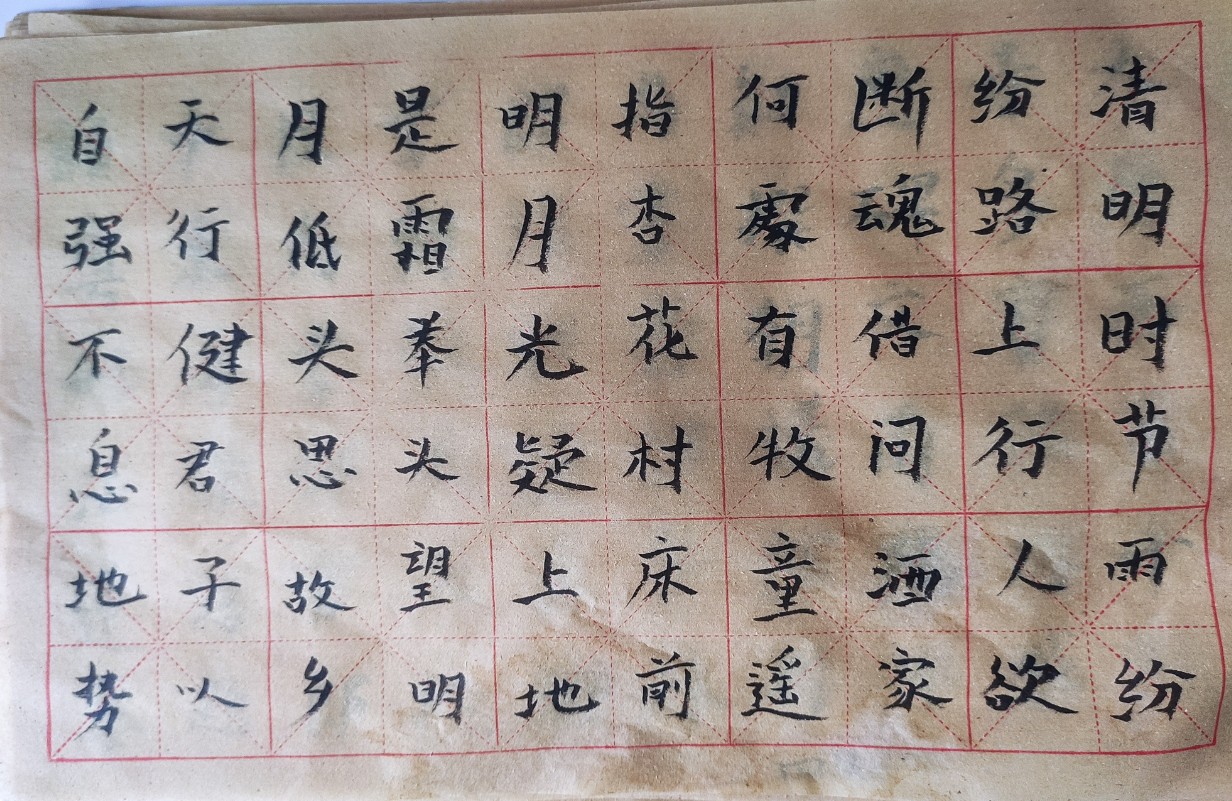 清明时节雨纷
纷路上行人欲
断魂借问酒家
何處有牧童遥
指杏花村床前
明月光疑上地
是霜举头望明
月低头思故乡
天行健君子以
自强不息地势